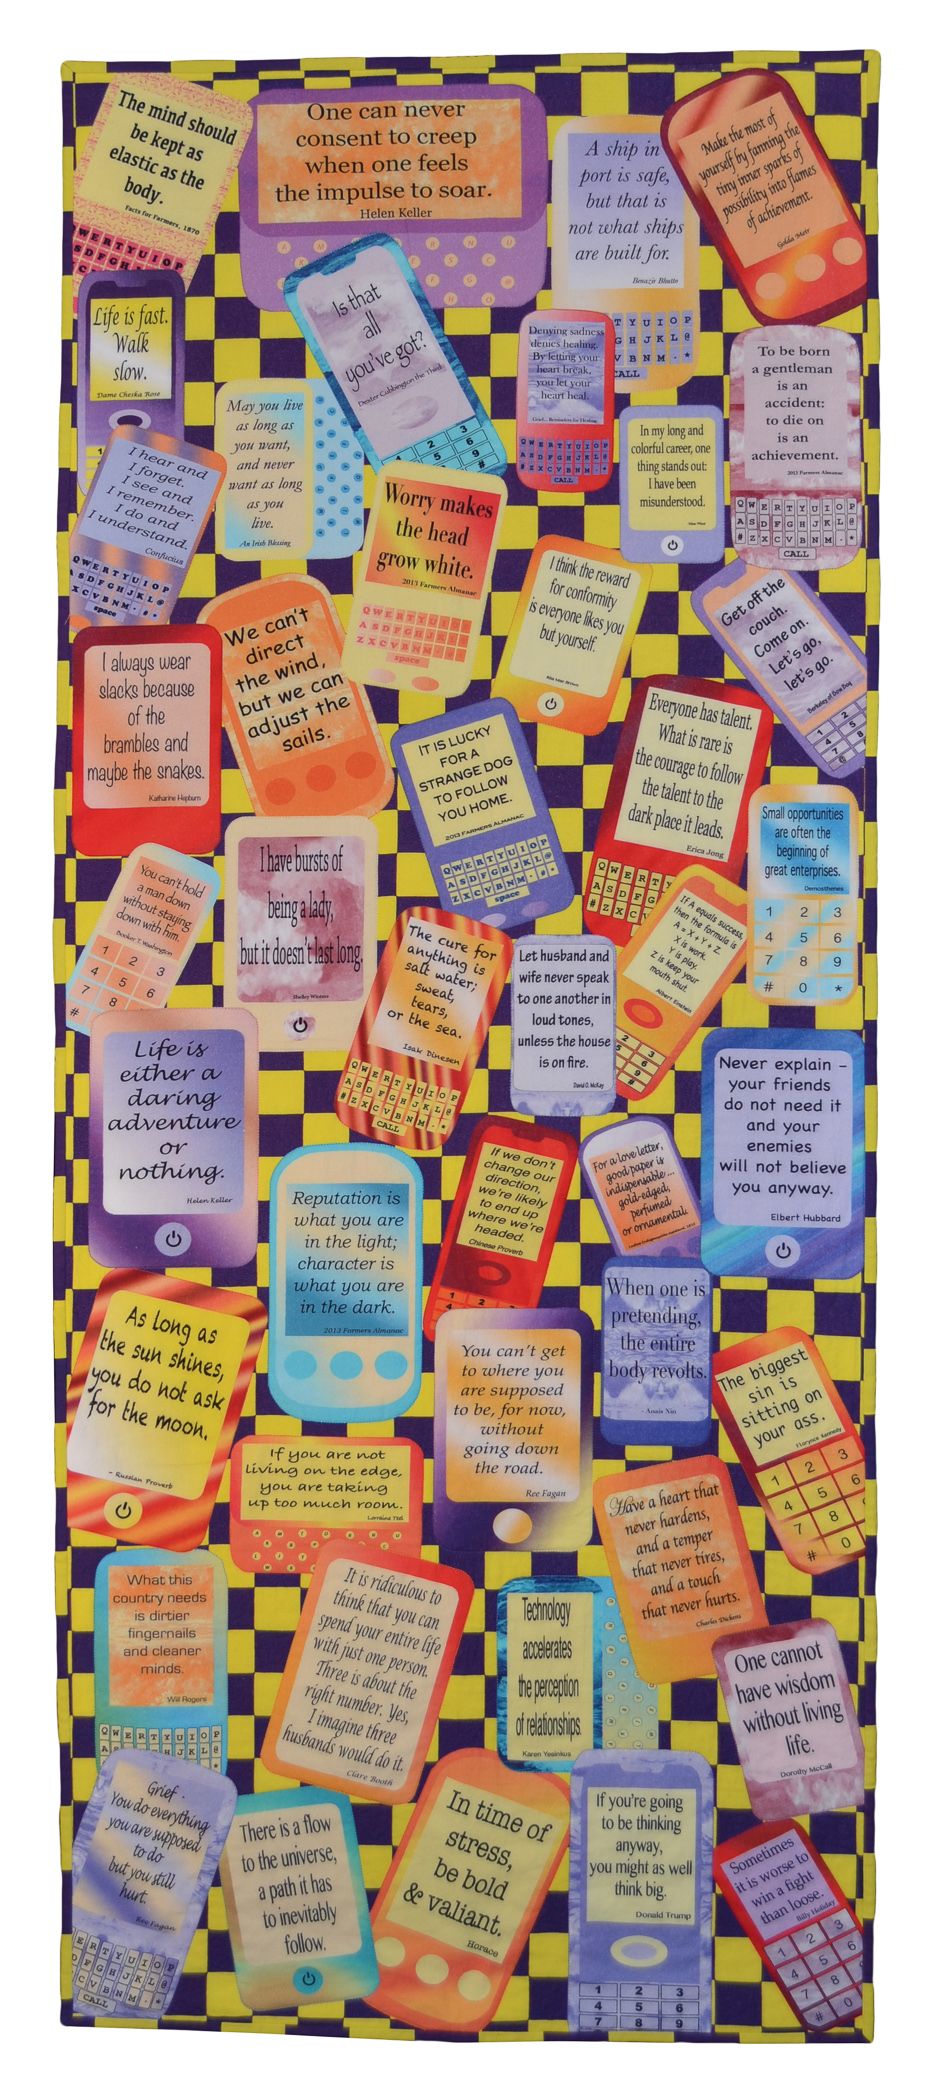 The mind should
be kept as
elastic as the
body.
Facts for Farmers, 1870
WERTYUIOP
SDFGHJ
One can never
consent to creep
when one feels
the impulse to soar.
Helen Keller
A ship in
port is safe,
but that is
not what ships
are built for.
Benazir Bhutto
TYUIOP
JKL@
VBNM.*
CALL
Make the most of
yourself by fanning the
tiny inner sparks of
possibility into flames
of achievement.
Golda Meir
Life is fast.
Walk
slow.
Dame Cheska Rose
Is that
all
you've got?
Dexter Cubbington the Third
2 3
5 6
8 9
#
Denying sadness
denies healing.
By letting your
heart break,
you let your
heart heal.
Grief... Reminders for Healing
QWERTYUIOP
ASDFGHJKL@
#ZXCVBNM.*
CALL
To be born
a gentleman
is an
accident;
to die on
is an
achievement.
2013 Farmers Almanac
QWERTYUIOP
ASDFGHJKL@
#ZXCVBNM.*
CALL
May you live
as long as
you want,
and never
want as long
as you
live.
An Irish Blessing
In my long and
colorful career, one
thing stands out:
I have been
misunderstood.
Mae West
I hear and
I forget.
I see and
I remember.
I do and
I understand.
Confucius
QWERTYUIOP
ASDFGHJKL@
ZXCVBNM.*
space
Worry makes
the head
grow white.
2013 Farmers Almanac
QWERTYUIOP
ASDFGHJKL
ZXCVBNM
space
I think the reward
for conformity
is everyone likes you
but yourself.
Rita Mae Brown
Get off the
couch.
Come on.
Let's go,
let's go.
Berkeley of Bow Dog
We can't
direct
the wind,
but we can
adjust the
sails.
I always wear
slacks because
of the
brambles and
maybe the snakes.
Katharine Hepburn
IT IS LUCKY
FOR A
STRANGE DOG
TO FOLLOW
YOU HOME.
2013 FARMERS ALMANAC
QWERTYUIOP
ASDFGHJKL@
ZXCVBNM.*
space
Everyone has talent.
What is rare is
the courage to follow
the talent to the
dark place it leads.
Erica Jong
QWERTY
ASDFG
#ZXCV
Small opportunities
are often the
beginning of
great enterprises.
Demosthenes
1 2 3
4 5 6
7 8 9
# 0 *
You can't hold
a man down
without staying
down with him.
Booker T. Washington
1 2 3
4 5 6
7 8
#
I have bursts of
being a lady,
but it doesn't last long.
Shelley Winters
The cure for
anything is
salt water;
sweat,
tears,
or the sea.
Isak Dinesen
QWERTYUIOP
ASDFGHJKL@
#ZXCVBNM.*
CALL
Let husband and
wife never speak
to one another in
loud tones,
unless the house
is on fire.
David O. McKay
If A equals success,
then the formula is
A = X + Y + Z.
X is work.
Y is play.
Z is keep your
mouth shut.
Albert Einstein
2 3
5 6
8 9
#
Life is
either a
daring
adventure
or
nothing.
Helen Keller
Never explain –
your friends
do not need it
and your
enemies
will not believe
you anyway.
Elbert Hubbard
Reputation is
what you are
in the light;
character is
what you are
in the dark.
2013 Farmers Almanac
If we don't
change our
direction,
we're likely
to end up
where we're
headed.
Chinese Proverb
1 2 3
4
For a love letter,
good paper is
indispensable...
gold-edged,
perfumed
or ornamental.
As long as
the sun shines,
you do not ask
for the moon.
- Russian Proverb
When one is
pretending,
the entire
body revolts.
- Anais Nin
You can't get
to where you
are supposed
to be, for now,
without
going down
the road.
Ree Fagan
The biggest
sin is
sitting on
your ass.
Florynce Kennedy
1 2 3
4 5 6
7 8
# 0
If you are not
living on the edge,
you are taking
up too much room.
Lorraine Teel
Have a heart that
never hardens,
and a temper
that never tires,
and a touch
that never hurts.
Charles Dickens
What this
country needs
is dirtier
fingernails
and cleaner
minds.
Will Rogers
QWERTYUIOP
It is ridiculous to
think that you can
spend your entire life
with just one person.
Three is about the
right number. Yes,
I imagine three
husbands would do it.
Clare Booth
Technology
accelerates
the perception
of relationships.
Karen Yesinkus
One cannot
have wisdom
without living
life.
Dorothy McCall
Grief.
You do everything
you are supposed
to do
but you still
hurt.
Ree Fagan
ERTYUIOP
DFGHJKL@
XCVBNM.*
CALL
There is a flow
to the universe,
a path it has
to inevitably
follow.
In time of
stress,
be bold
& valiant.
Horace
If you're going
to be thinking
anyway,
you might as well
think big.
Donald Trump
1 2 3
4 5 6
7 8 9
Sometimes
it is worse to
win a fight
than loose.
Billy Holiday
1 2 3
4 5 6
7 8 9
# 0